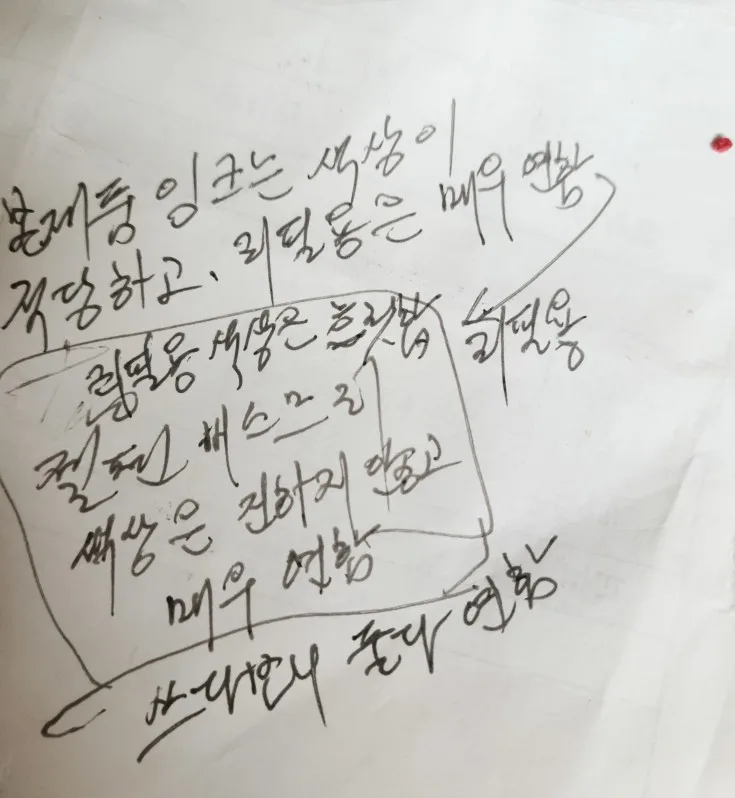 본제품 잉크는 색상이
적당하고, 리필용은 매우 연함
리필용 색상은 흐릿함 리필용
젤펜
색상은 진하지 않고
매우 연함
둘다 연함